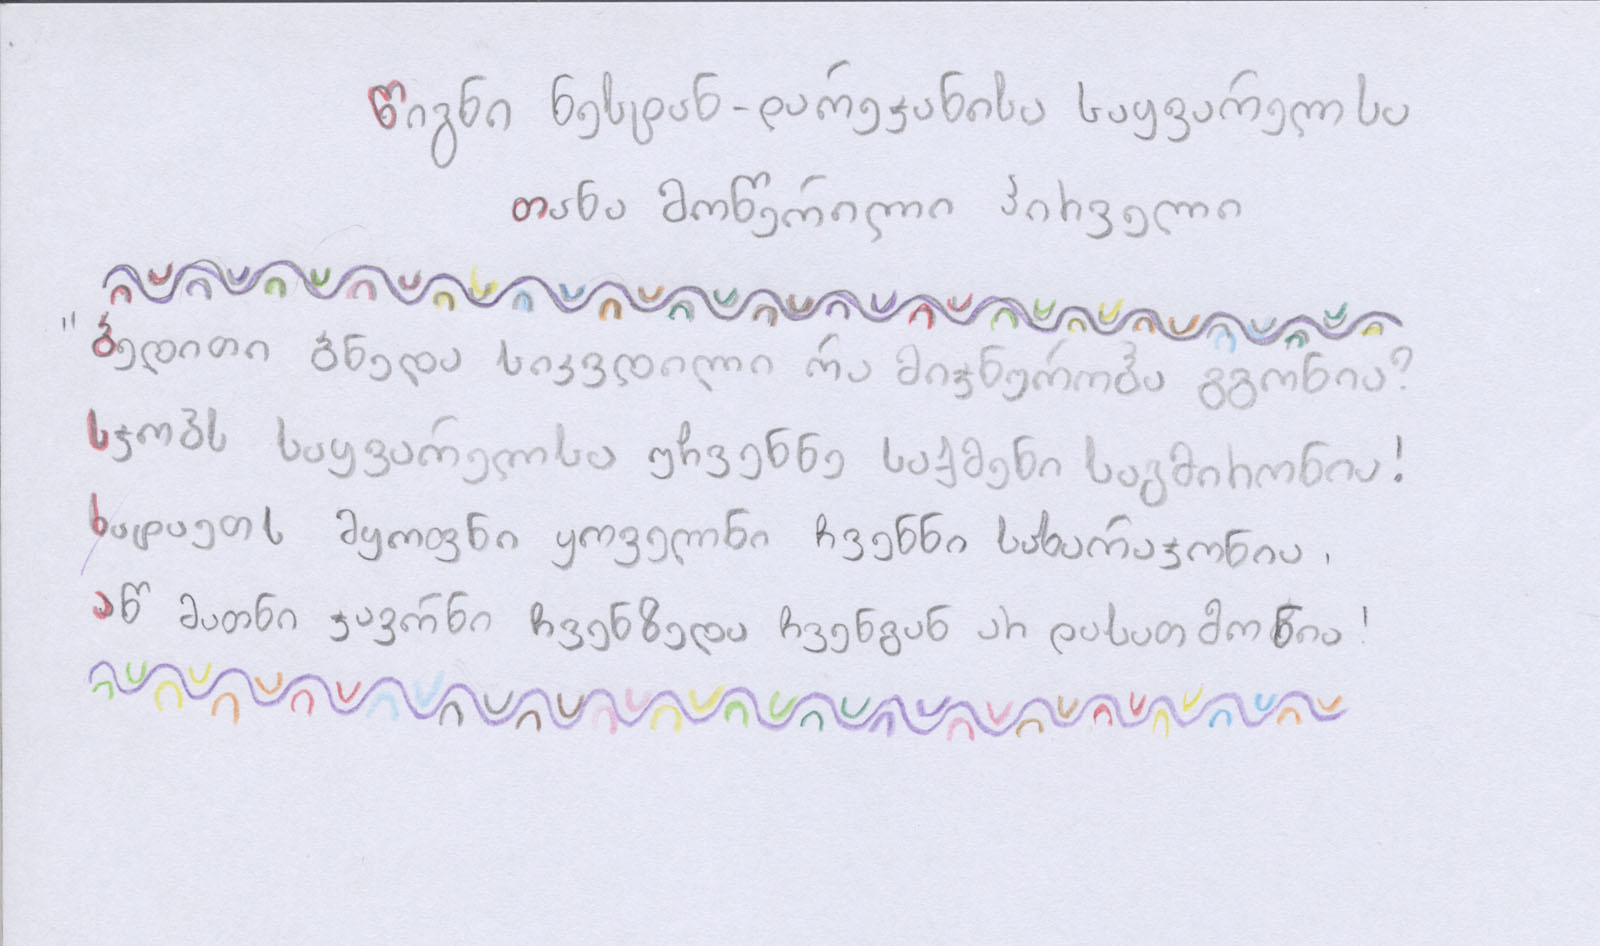 წიგნი ნესტან-დარეჯანისა საყვარელსა
თანა მოწერილი პირველი
"ბედითი ბნედა სიკვდილი რა მიჯნურობა გგონია?
სჯობს საყვარელსა უჩვენნე საქმენი საგმირონია!
ხატაეთს მყოფნი ყოველნი ჩვენნი სახარაჯონია,
აწ მათნი ჯავრნი ჩვენზედა ჩვენგან არ დასათმონია!